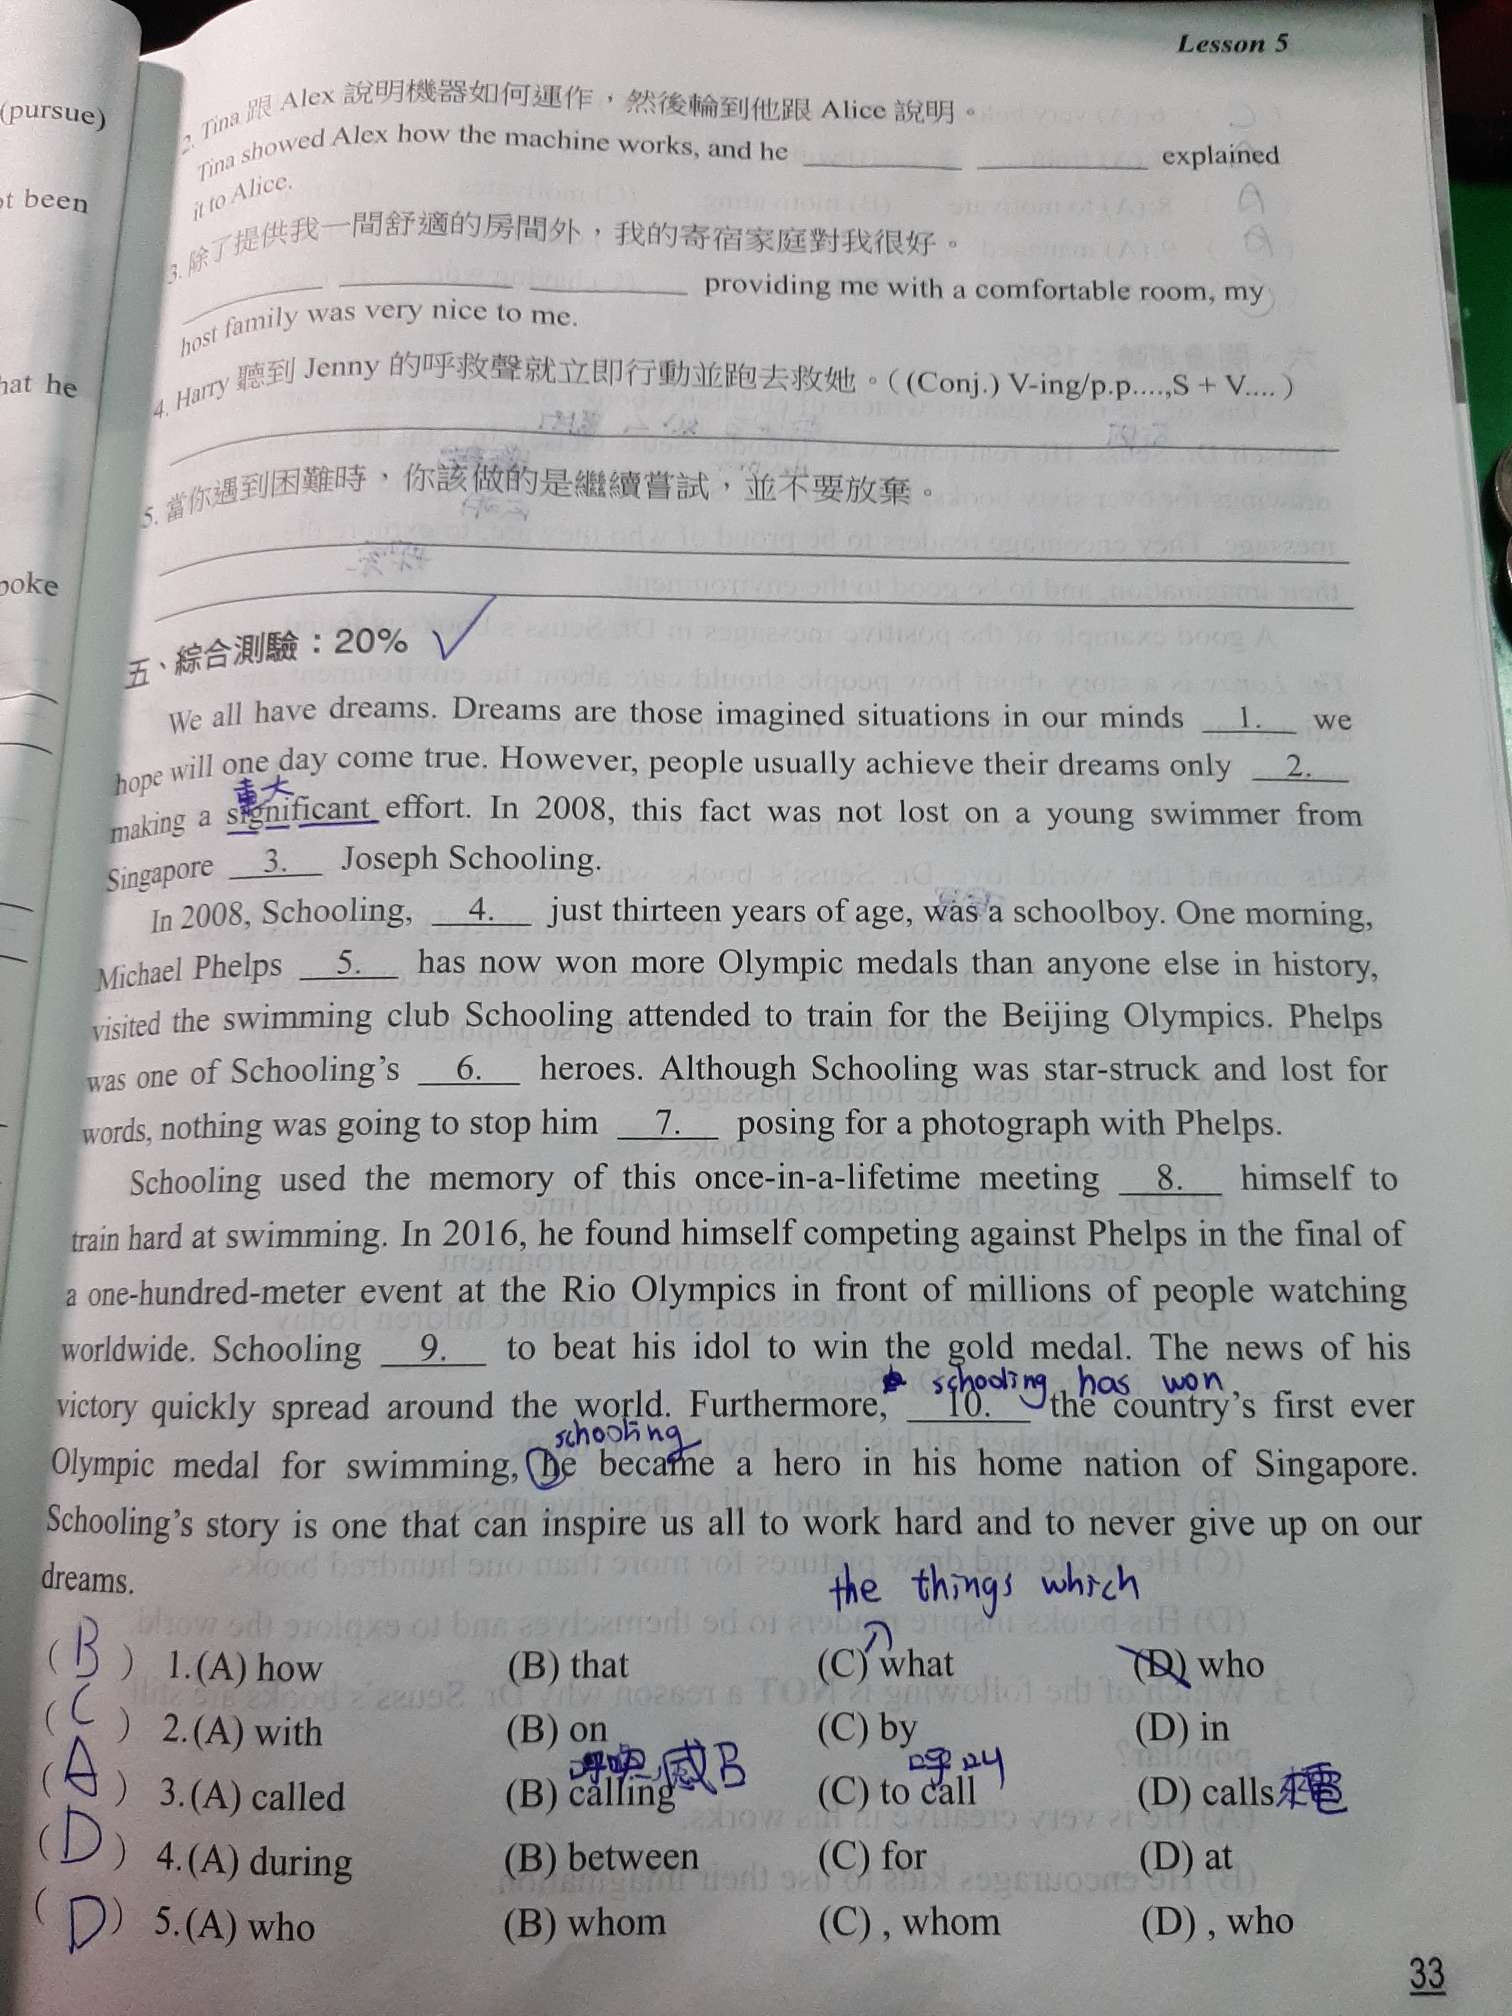 Lesson 5
(pursue)
ot been
hat he
poke
2. Tina 跟 Alex 說明機器如何運作，然後輪到他跟 Alice 說明。
Tina showed Alex how the machine works, and he ________ ________ explained
it to Alice.
3. 除了提供我一間舒適的房間外，我的寄宿家庭對我很好。
________ ________ ________ providing me with a comfortable room, my
host family was very nice to me.
4. Harry 聽到 Jenny 的呼救聲就立即行動並跑去救她。( (Conj.) V-ing/p.p....,S + V.... )
5. 當你遇到困難時，你該做的是繼續嘗試，並不要放棄。
五、綜合測驗：20% ✓
We all have dreams. Dreams are those imagined situations in our minds 1. we
hope will one day come true. However, people usually achieve their dreams only 2.
重大
making a significant effort. In 2008, this fact was not lost on a young swimmer from
Singapore 3. Joseph Schooling.
In 2008, Schooling, 4. just thirteen years of age, was a schoolboy. One morning,
Michael Phelps 5. has now won more Olympic medals than anyone else in history,
visited the swimming club Schooling attended to train for the Beijing Olympics. Phelps
was one of Schooling's 6. heroes. Although Schooling was star-struck and lost for
words, nothing was going to stop him 7. posing for a photograph with Phelps.
Schooling used the memory of this once-in-a-lifetime meeting 8. himself to
train hard at swimming. In 2016, he found himself competing against Phelps in the final of
a one-hundred-meter event at the Rio Olympics in front of millions of people watching
worldwide. Schooling 9. to beat his idol to win the gold medal. The news of his
schooling has won
victory quickly spread around the world. Furthermore, 10. the country's first ever
schooling
Olympic medal for swimming, he became a hero in his home nation of Singapore.
Schooling's story is one that can inspire us all to work hard and to never give up on our
dreams.
the things which
( B ) 1.(A) how (B) that (C) what (D) who
( C ) 2.(A) with (B) on (C) by (D) in
呼叫
( A ) 3.(A) called (B) calling (C) to call (D) calls
( D ) 4.(A) during (B) between (C) for (D) at
( D ) 5.(A) who (B) whom (C) , whom (D) , who
33